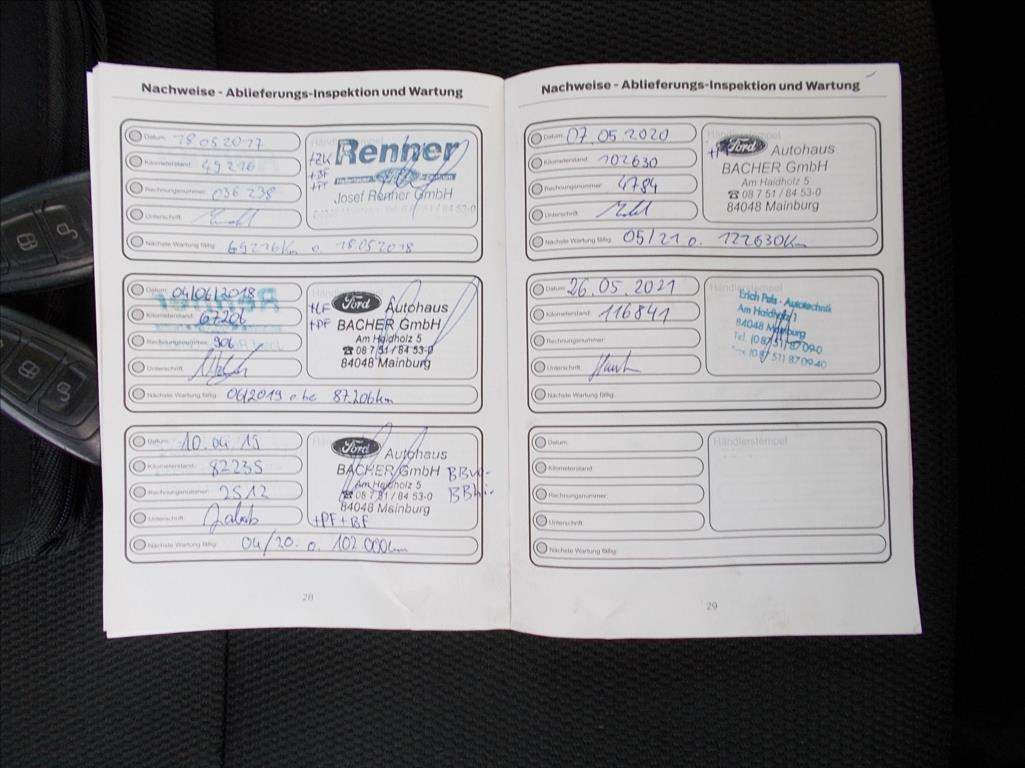 Nachweise - Ablieferungs-Inspektion und Wartung
Datum: 18.05.2017
Kilometerstand: 49216
Rechnungsnummer: 036238
Unterschrift:
Nächste Wartung fällig: 69216km o. 18.05.2018
Renner
Josef Renner GmbH
Datum: 04/06/2018
Kilometerstand: 67206
Rechnungsnummer: 906
Unterschrift:
Nächste Wartung fällig: 06/2019 o. bei 87.206km
Ford Autohaus
BACHER GmbH
Am Haidholz 5
☎ 08 7 51 / 84 53-0
84048 Mainburg
Datum: 10.04.19
Kilometerstand: 82235
Rechnungsnummer: 2512
Unterschrift:
Nächste Wartung fällig: 04/20. o. 102000km
Händlerstempel
Ford Autohaus
BACHER GmbH BBvo.
Am Haidholz 5 BBhi.
☎ 08 7 51 / 84 53-0
84048 Mainburg
+PF +BF
28
Nachweise - Ablieferungs-Inspektion und Wartung
Datum: 07.05.2020
Kilometerstand: 102630
Rechnungsnummer: 4784
Unterschrift:
Nächste Wartung fällig: 05/21 o. 122630km
Händlerstempel
Ford Autohaus
BACHER GmbH
Am Haidholz 5
☎ 08 7 51 / 84 53-0
84048 Mainburg
Datum: 26.05.2021
Kilometerstand: 116841
Rechnungsnummer:
Unterschrift:
Nächste Wartung fällig:
Händlerstempel
Erich Pels - Autotechnik
Am Haidholz 1
84048 Mainburg
Tel. (0 87 51) 87 09-0
Fax (0 87 51) 87 09-40
Datum:
Kilometerstand:
Rechnungsnummer:
Unterschrift:
Nächste Wartung fällig:
Händlerstempel
29